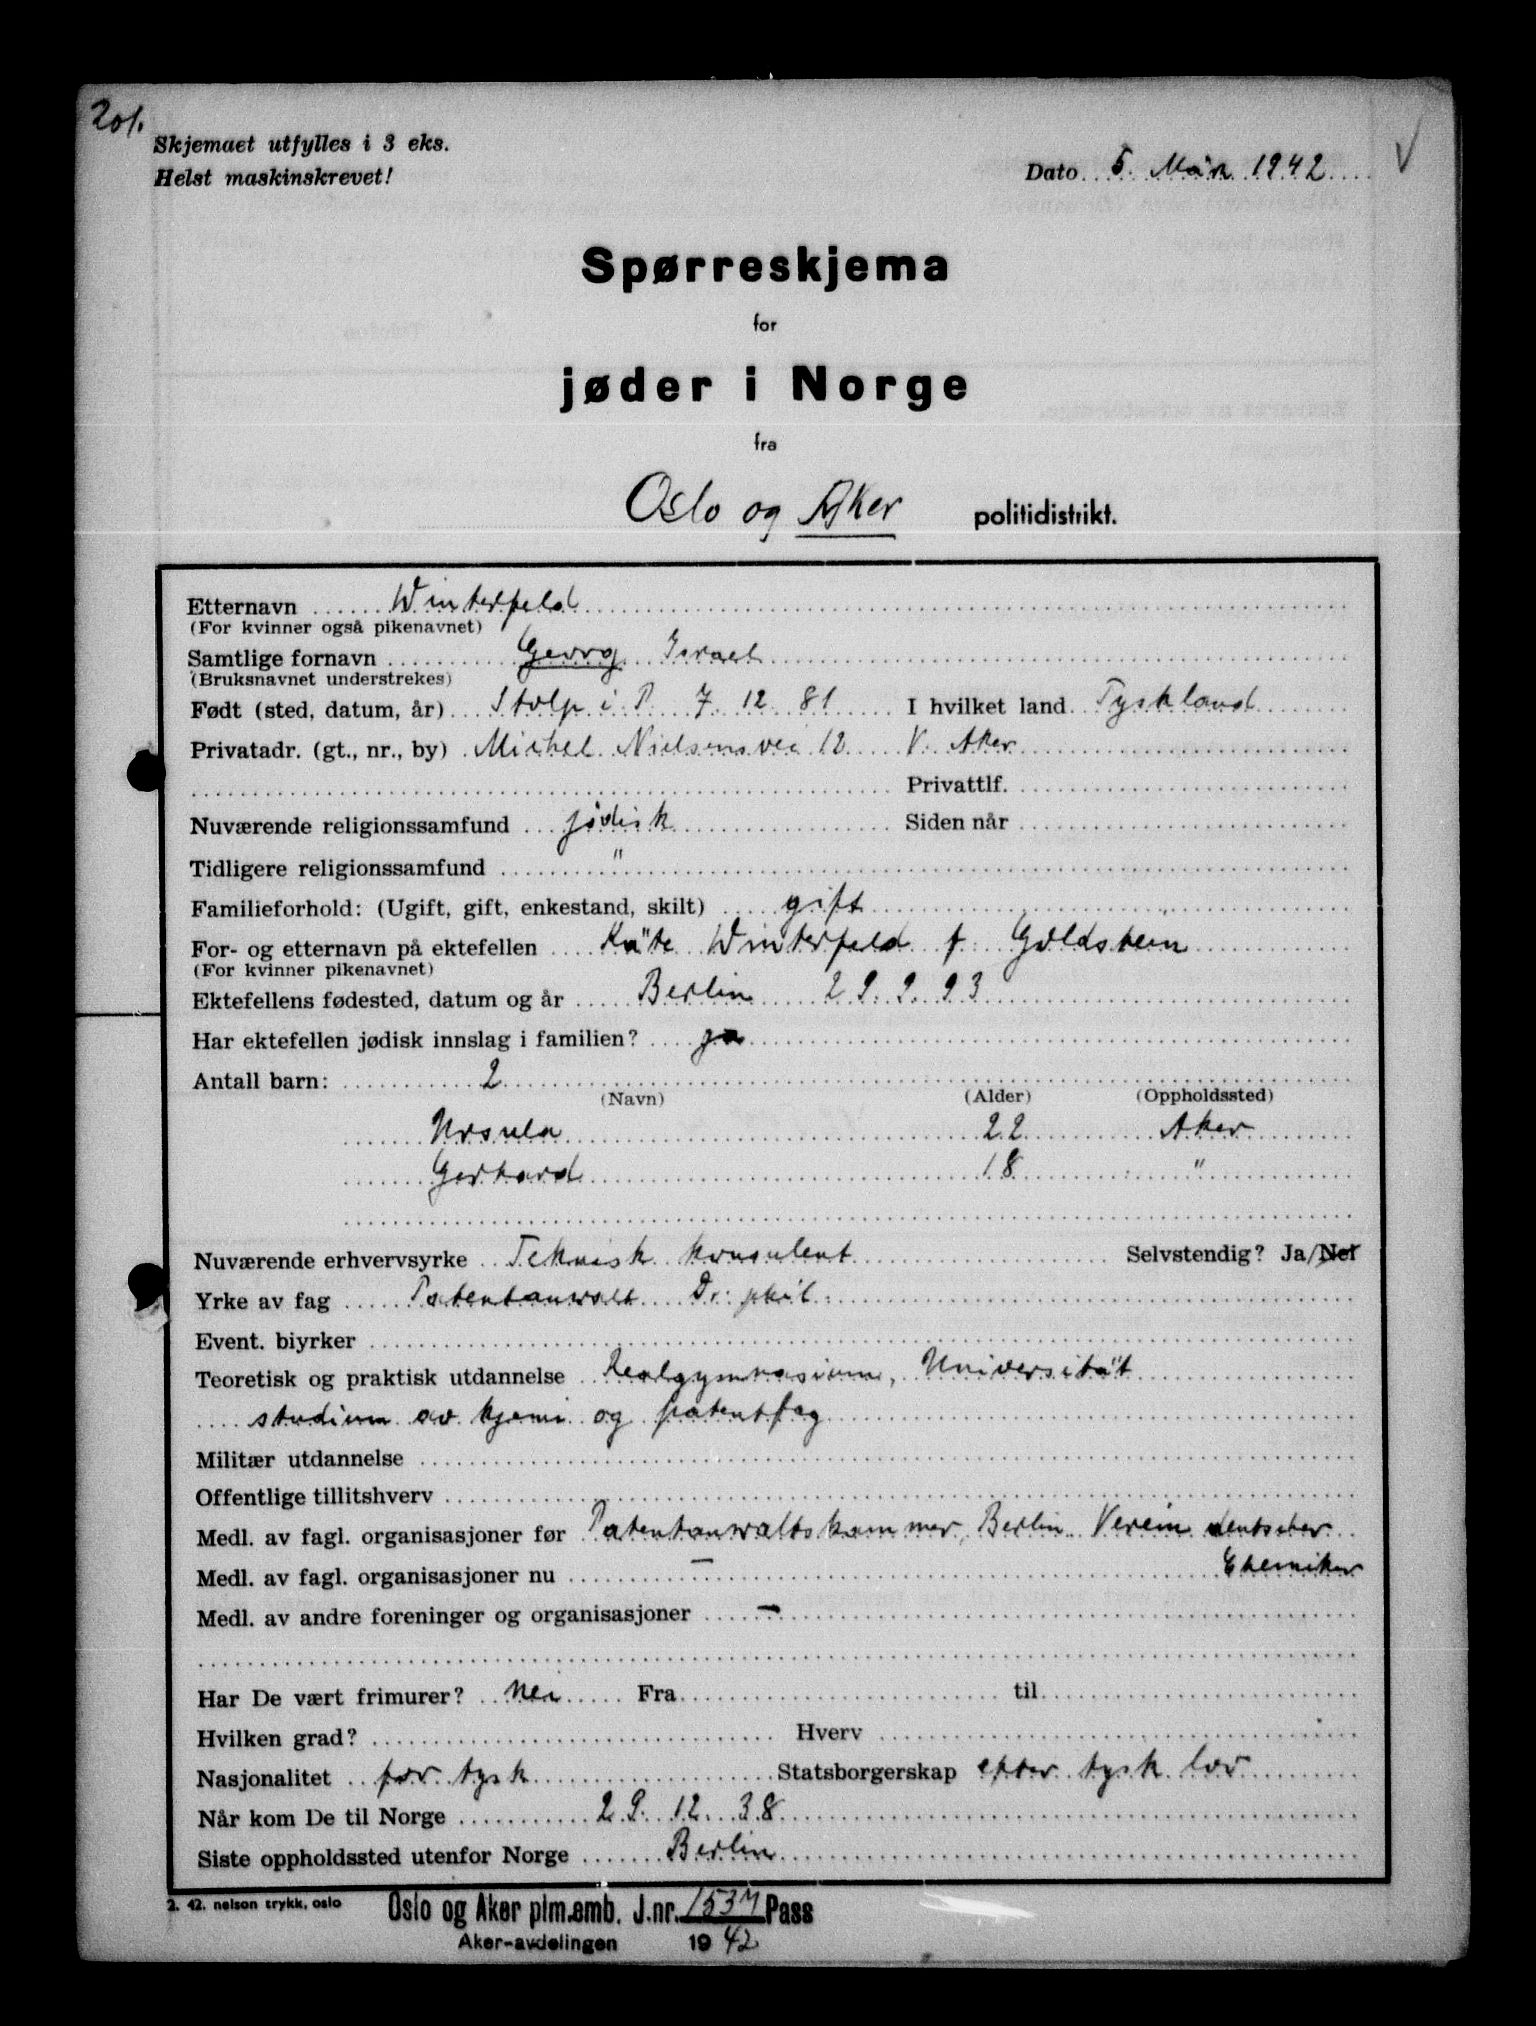 201.
Skjemaet utfylles i 3 eks.
Helst maskinskrevet!
Dato 5. März 1942
Spørreskjema
for
jøder i Norge
fra
Oslo og Aker politidistrikt.
Etternavn Winterfeld
(For kvinner også pikenavnet)
Samtlige fornavn Georg Israel
(Bruksnavnet understrekes)
Født (sted, datum, år) Stolp i P. 7. 12. 81 I hvilket land Tyskland
Privatadr. (gt., nr., by) Michel Nielsensvei 12 V. Aker
Privattlf.
Nuværende religionssamfund jödisk Siden når
Tidligere religionssamfund "
Familieforhold: (Ugift, gift, enkestand, skilt) gift
For- og etternavn på ektefellen Käte Winterfeld f. Goldstein
(For kvinner pikenavnet)
Ektefellens fødested, datum og år Berlin 29. 9. 93
Har ektefellen jødisk innslag i familien? ja
Antall barn: 2
(Navn) (Alder) (Oppholdssted)
Ursula 22 Aker
Gerhard 18 "
Nuværende erhvervsyrke Teknisk konsulent Selvstendig? Ja/Nei
Yrke av fag Patentanwalt Dr. phil.
Event. biyrker
Teoretisk og praktisk utdannelse Realgymnasium, Universität
studium av kjemi og patentfag
Militær utdannelse
Offentlige tillitshverv
Medl. av fagl. organisasjoner før Patentanwaltskammer, Berlin Verein deutscher
Chemiker
Medl. av fagl. organisasjoner nu —
Medl. av andre foreninger og organisasjoner —
Har De vært frimurer? nei Fra til
Hvilken grad? Hverv
Nasjonalitet för tysk Statsborgerskap efter tysk lov
Når kom De til Norge 29. 12. 38
Siste oppholdssted utenfor Norge Berlin
2. 42. nelson trykk, oslo
Oslo og Aker plm.emb. J.nr. 1537 Pass
Aker-avdelingen 1942